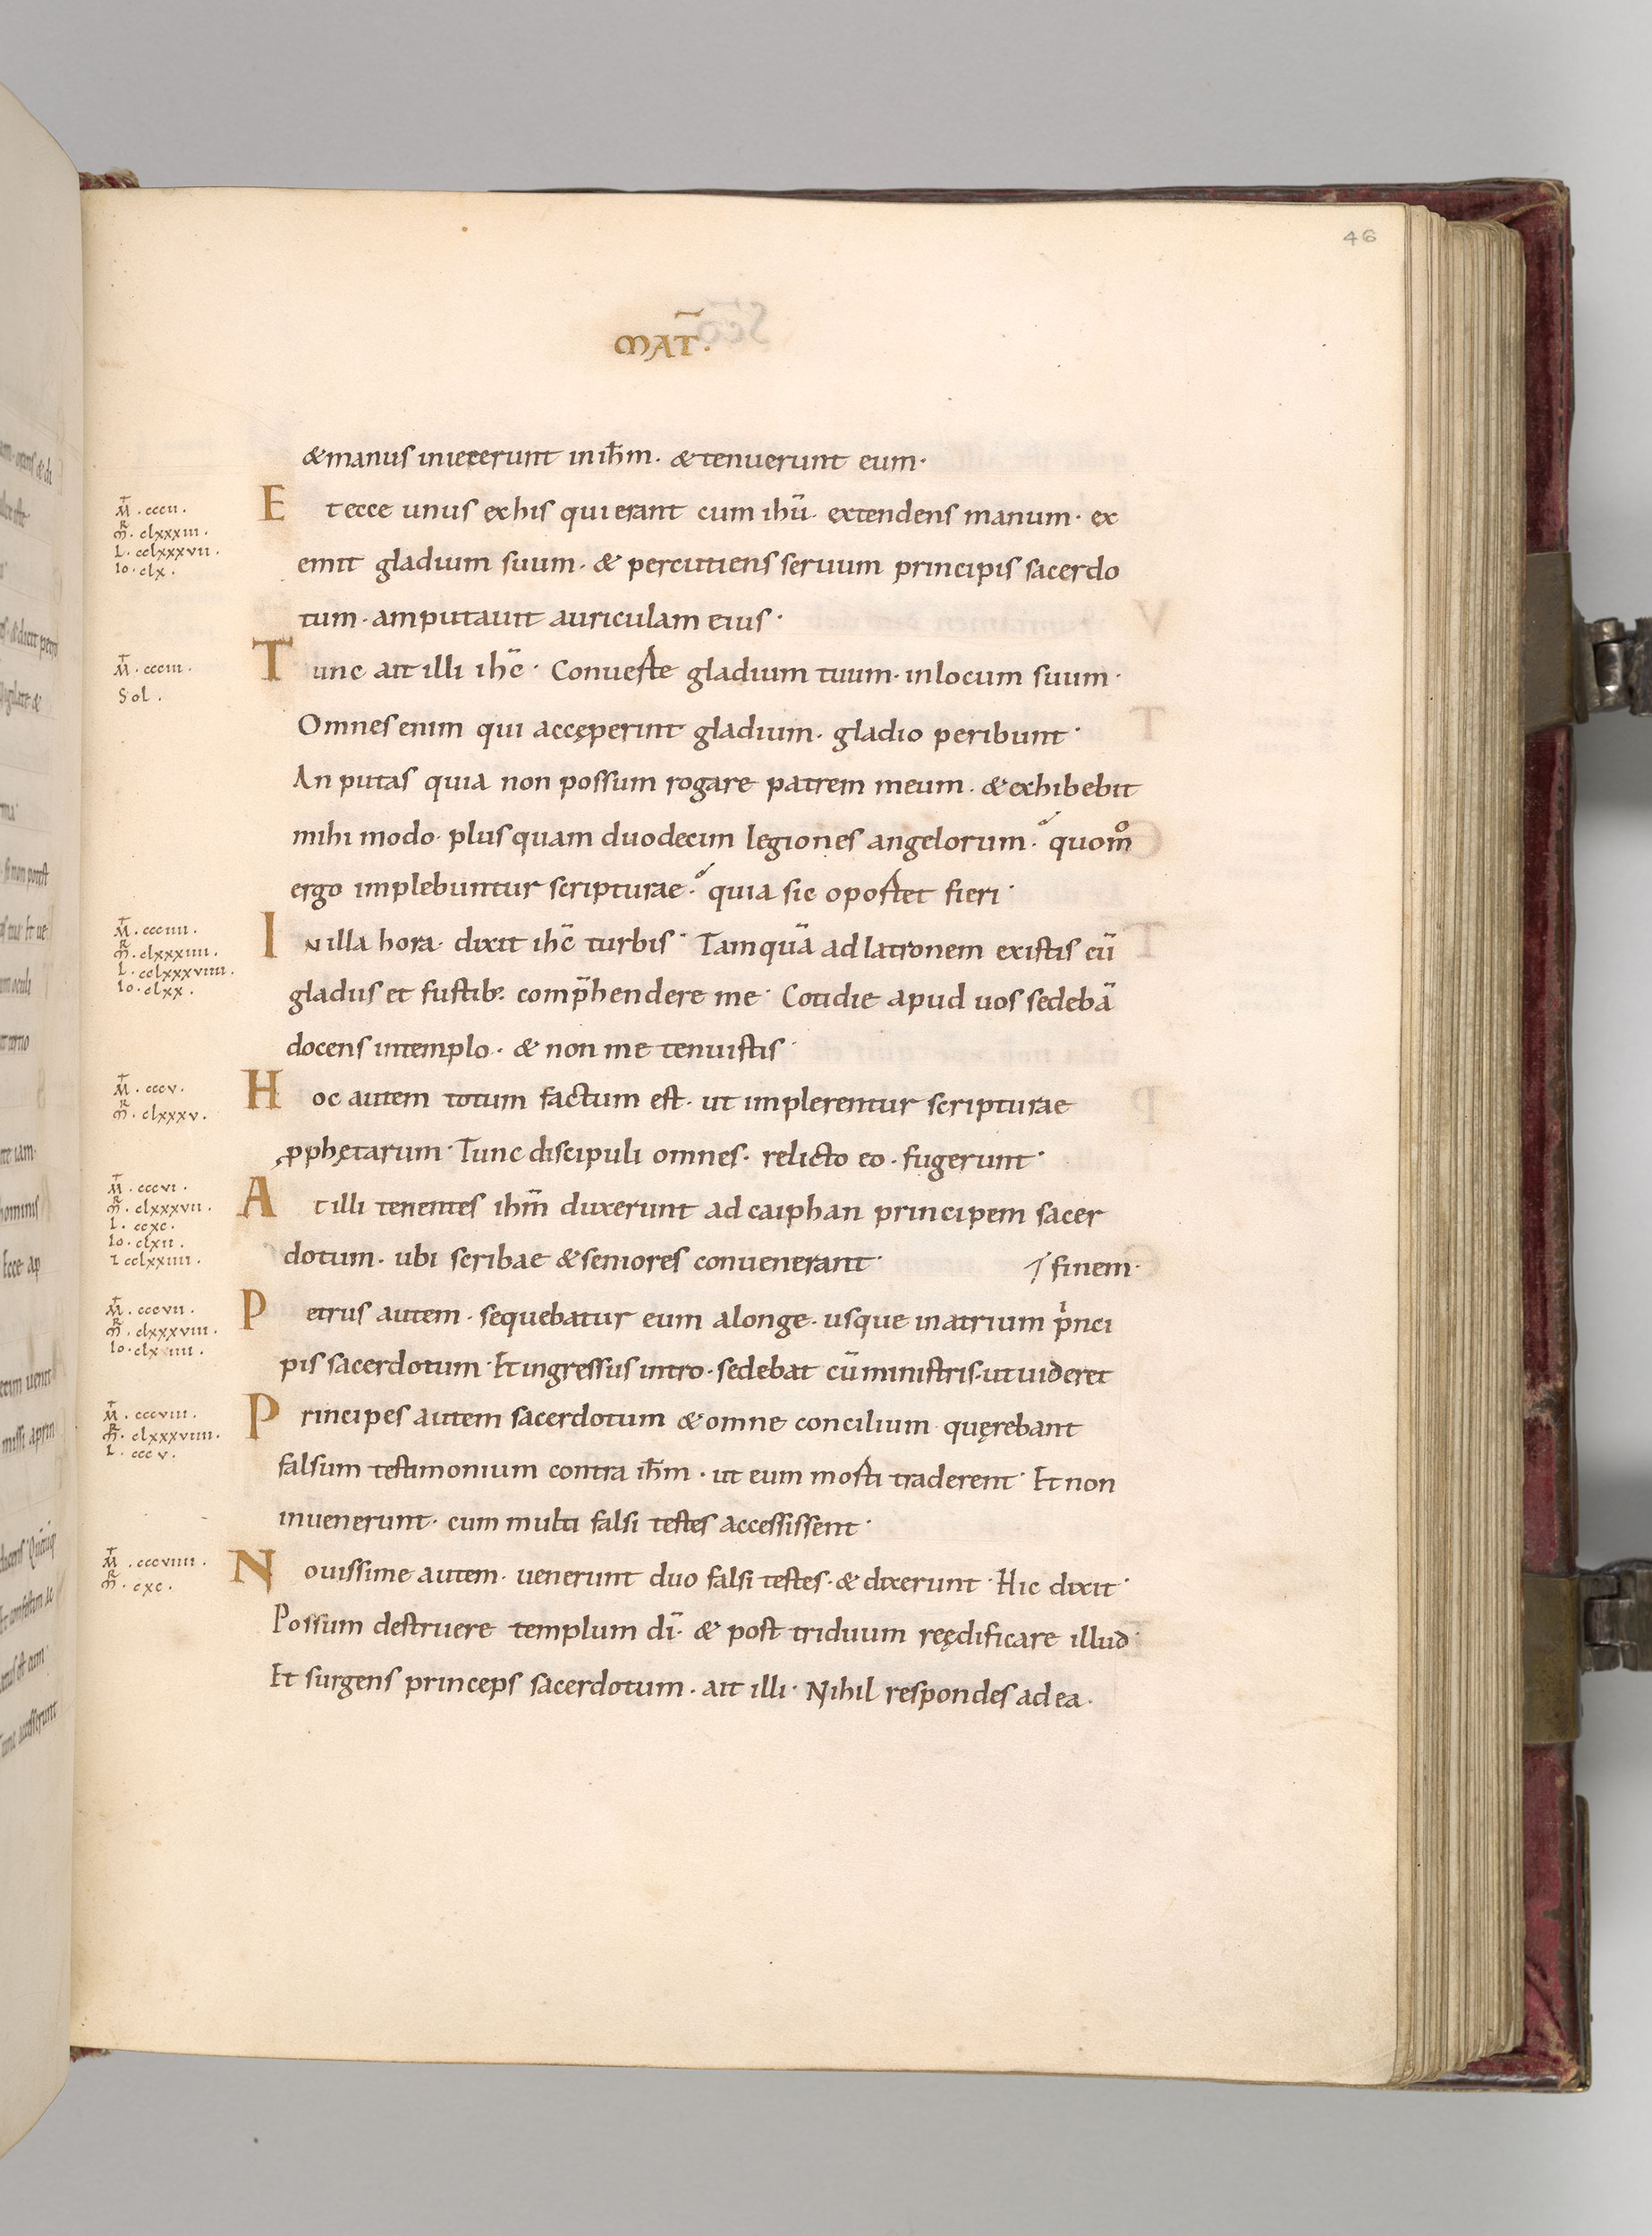 46
MAT̄.
& manus iniecerunt in ih̄m. & tenuerunt eum.
Et ecce unus ex his qui erant cum ihū. extendens manum. ex
emit gladium suum. & percutiens seruum principis sacerdo
tum. amputauit auriculam eius.
M̄. cccii.
M̄R. clxxxiii.
L. cclxxxvii.
Io. clx.
Tunc ait illi ihc̄. Conuerte gladium tuum. in locum suum.
M̄. ccciii.
Sol.
Omnes enim qui accęperint gladium. gladio peribunt.
An putas quia non possum rogare patrem meum. & exhibebit
mihi modo. plus quam duodecim legiones angelorum. quom̊
ergo implebuntur scripturae. quia sic oportet fieri.
In illa hora. dixit ihc̄ turbis. Tamquā ad latronem existis cū
gladiis et fustib; comp̄hendere me. Cotidie apud uos sedebā
docens in templo. & non me tenuistis.
M̄. ccciiii.
M̄R. clxxxiiii.
L. cclxxxviiii.
Io. clxx.
Hoc autem totum factum est. ut implerentur scripturae
ꝓphętarum. Tunc discipuli omnes. relicto eo. fugerunt.
M̄. cccv.
M̄R. clxxxv.
At illi tenentes ihm̄ duxerunt ad caiphan principem sacer
dotum. ubi scribae & seniores conuenerant. / finem.
M̄. cccvi.
M̄R. clxxxvii.
L. ccxc.
Io. clxii.
I cclxxiiii.
Petrus autem. sequebatur eum a longe. usque in atrium pͥnci
pis sacerdotum. Et ingressus intro. sedebat cū ministris. ut uideret
M̄. cccvii.
M̄R. clxxxviii.
Io. clx iiii.
Principes autem sacerdotum & omne concilium quęrebant
falsum testimonium contra ih̄m. ut eum morti traderent. Et non
inuenerunt. cum multi falsi testes accessissent.
M̄. cccviii.
M̄R. clxxxviiii.
L. cccv.
Nouissime autem. uenerunt duo falsi testes. & dixerunt. Hic dixit.
Possum destruere templum dī. & post triduum reędificare illud.
Et surgens princeps sacerdotum. ait illi. Nihil respondes ad ea.
M̄. cccviiii.
M̄R. cxc.